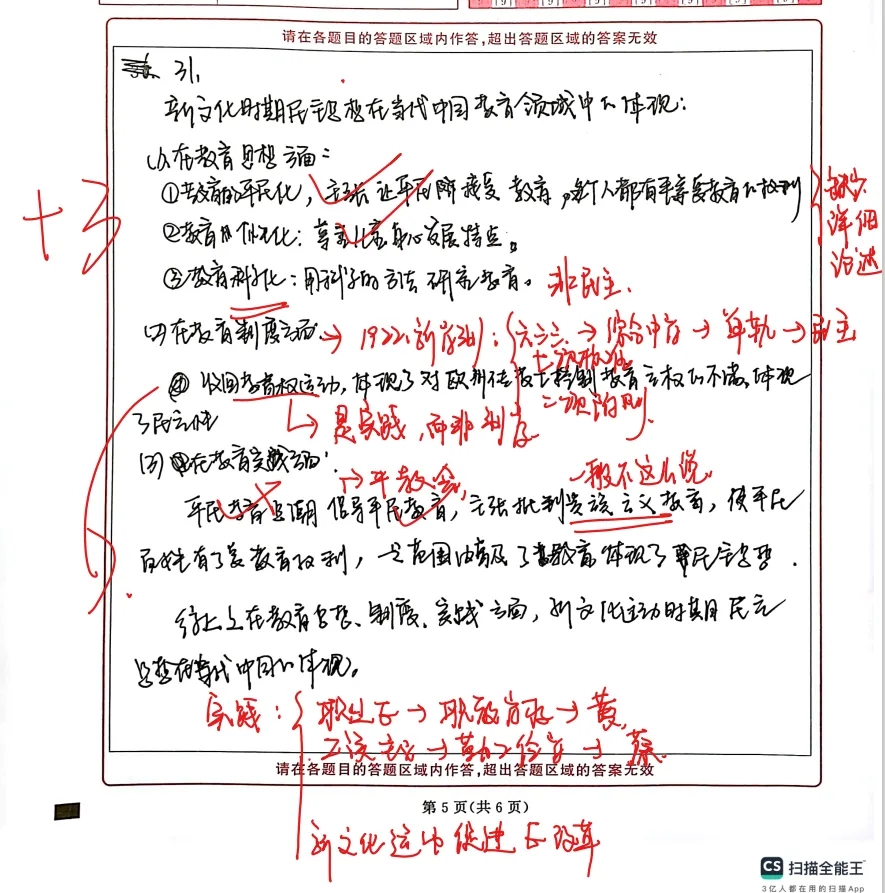 请在各题目的答题区域内作答,超出答题区域的答案无效
31、
新文化时期民主思想在当代中国教育领域中的体现：
(1)在教育思想方面：
①教育的平民化，主张让平民阶级受教育，每个人都有平等受教育的权利
缺少
详细
论述
+3
②教育的个性化：尊重儿童身心发展特点。
③教育科学化：用科学的方法研究教育。
非民主.
(2)在教育制度方面
→ 1922.新学制：六三三 → 综合中学 → 单轨 → 民主
七项标准
二项附则.
收回教育权运动，体现了对欧洲传教士控制教育主权的不满，体现
了民主
↳ 是实践，而非制度
(3)在教育实践方面
→平教会,
一般不这么说
平民教育思潮 倡导平民教育，主张批判贵族主义教育，使平民
百姓有了受教育权利，大范围的普及了教育体现了民主思想.
综上,在教育思想、制度、实践方面，新文化运动时期民主
思想在当代中国的体现。
实践：职业 → 职教 → 黄
工读 → 勤工俭学 → 蔡
请在各题目的答题区域内作答,超出答题区域的答案无效
第 5 页(共 6 页)
新文化运动促进 改革
CS 扫描全能王
3亿人都在用的扫描App